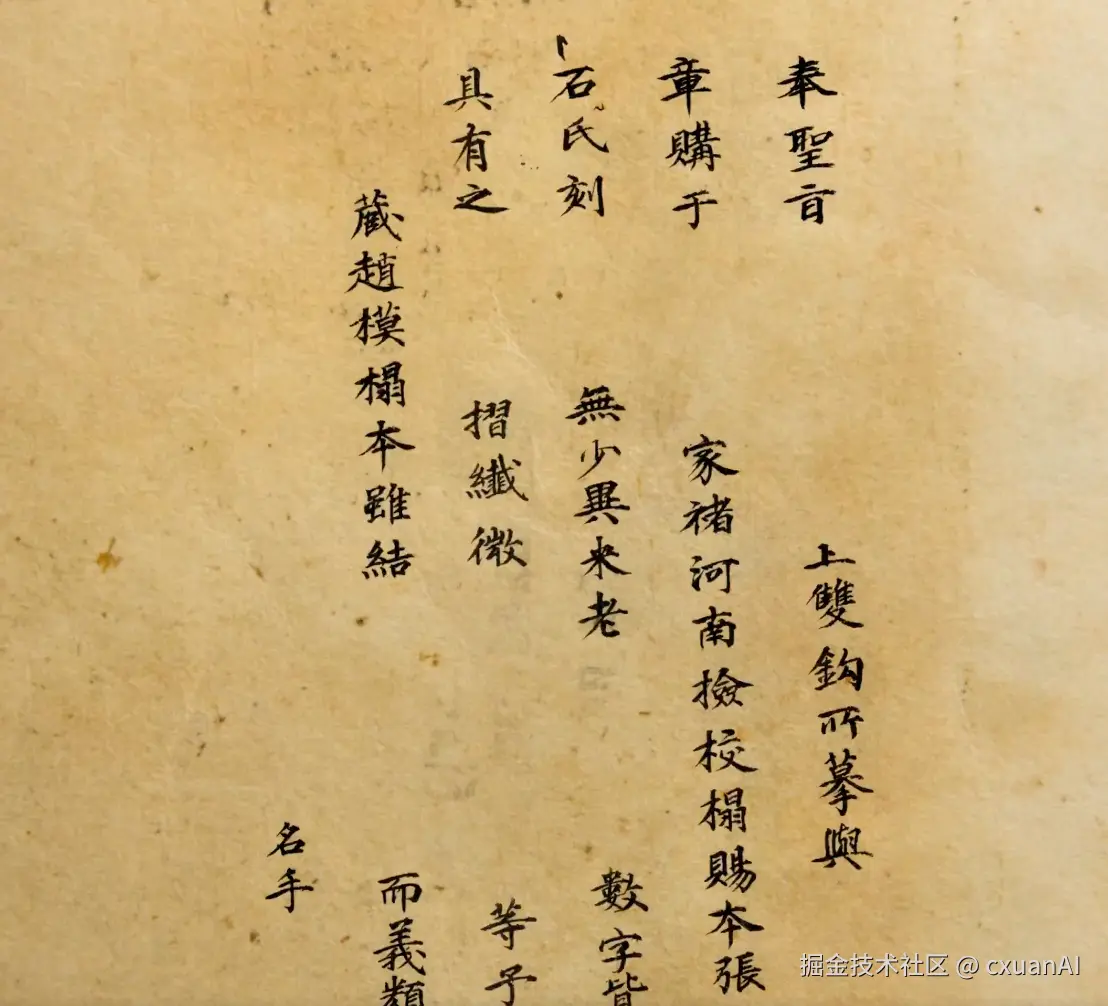 奉聖旨
上雙鈎所摹與
章購于
家褚河南檢校榻賜本張
石氏刻
無少異来老
數字皆
具有之
摺纖微
等子
蔵趙模榻本雖結
而義類
名手
掘金技术社区 @ cxuanAI